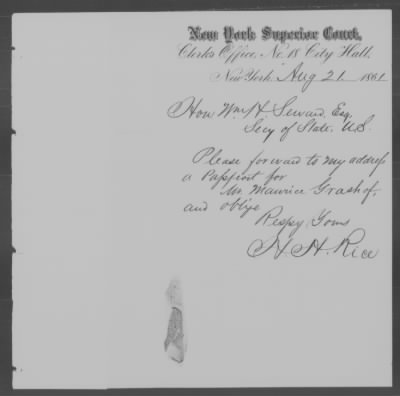 New York Superior Court,
Clerks Office, No. 18 City Hall,
New York. Aug 21 1861
Hon Wm H. Seward, Esq.
Secy of State. U.S.
Please forward to my address
a Passport for
Mr. Maurice Grashof,
and oblige
Respy Yours
H. H. Rice